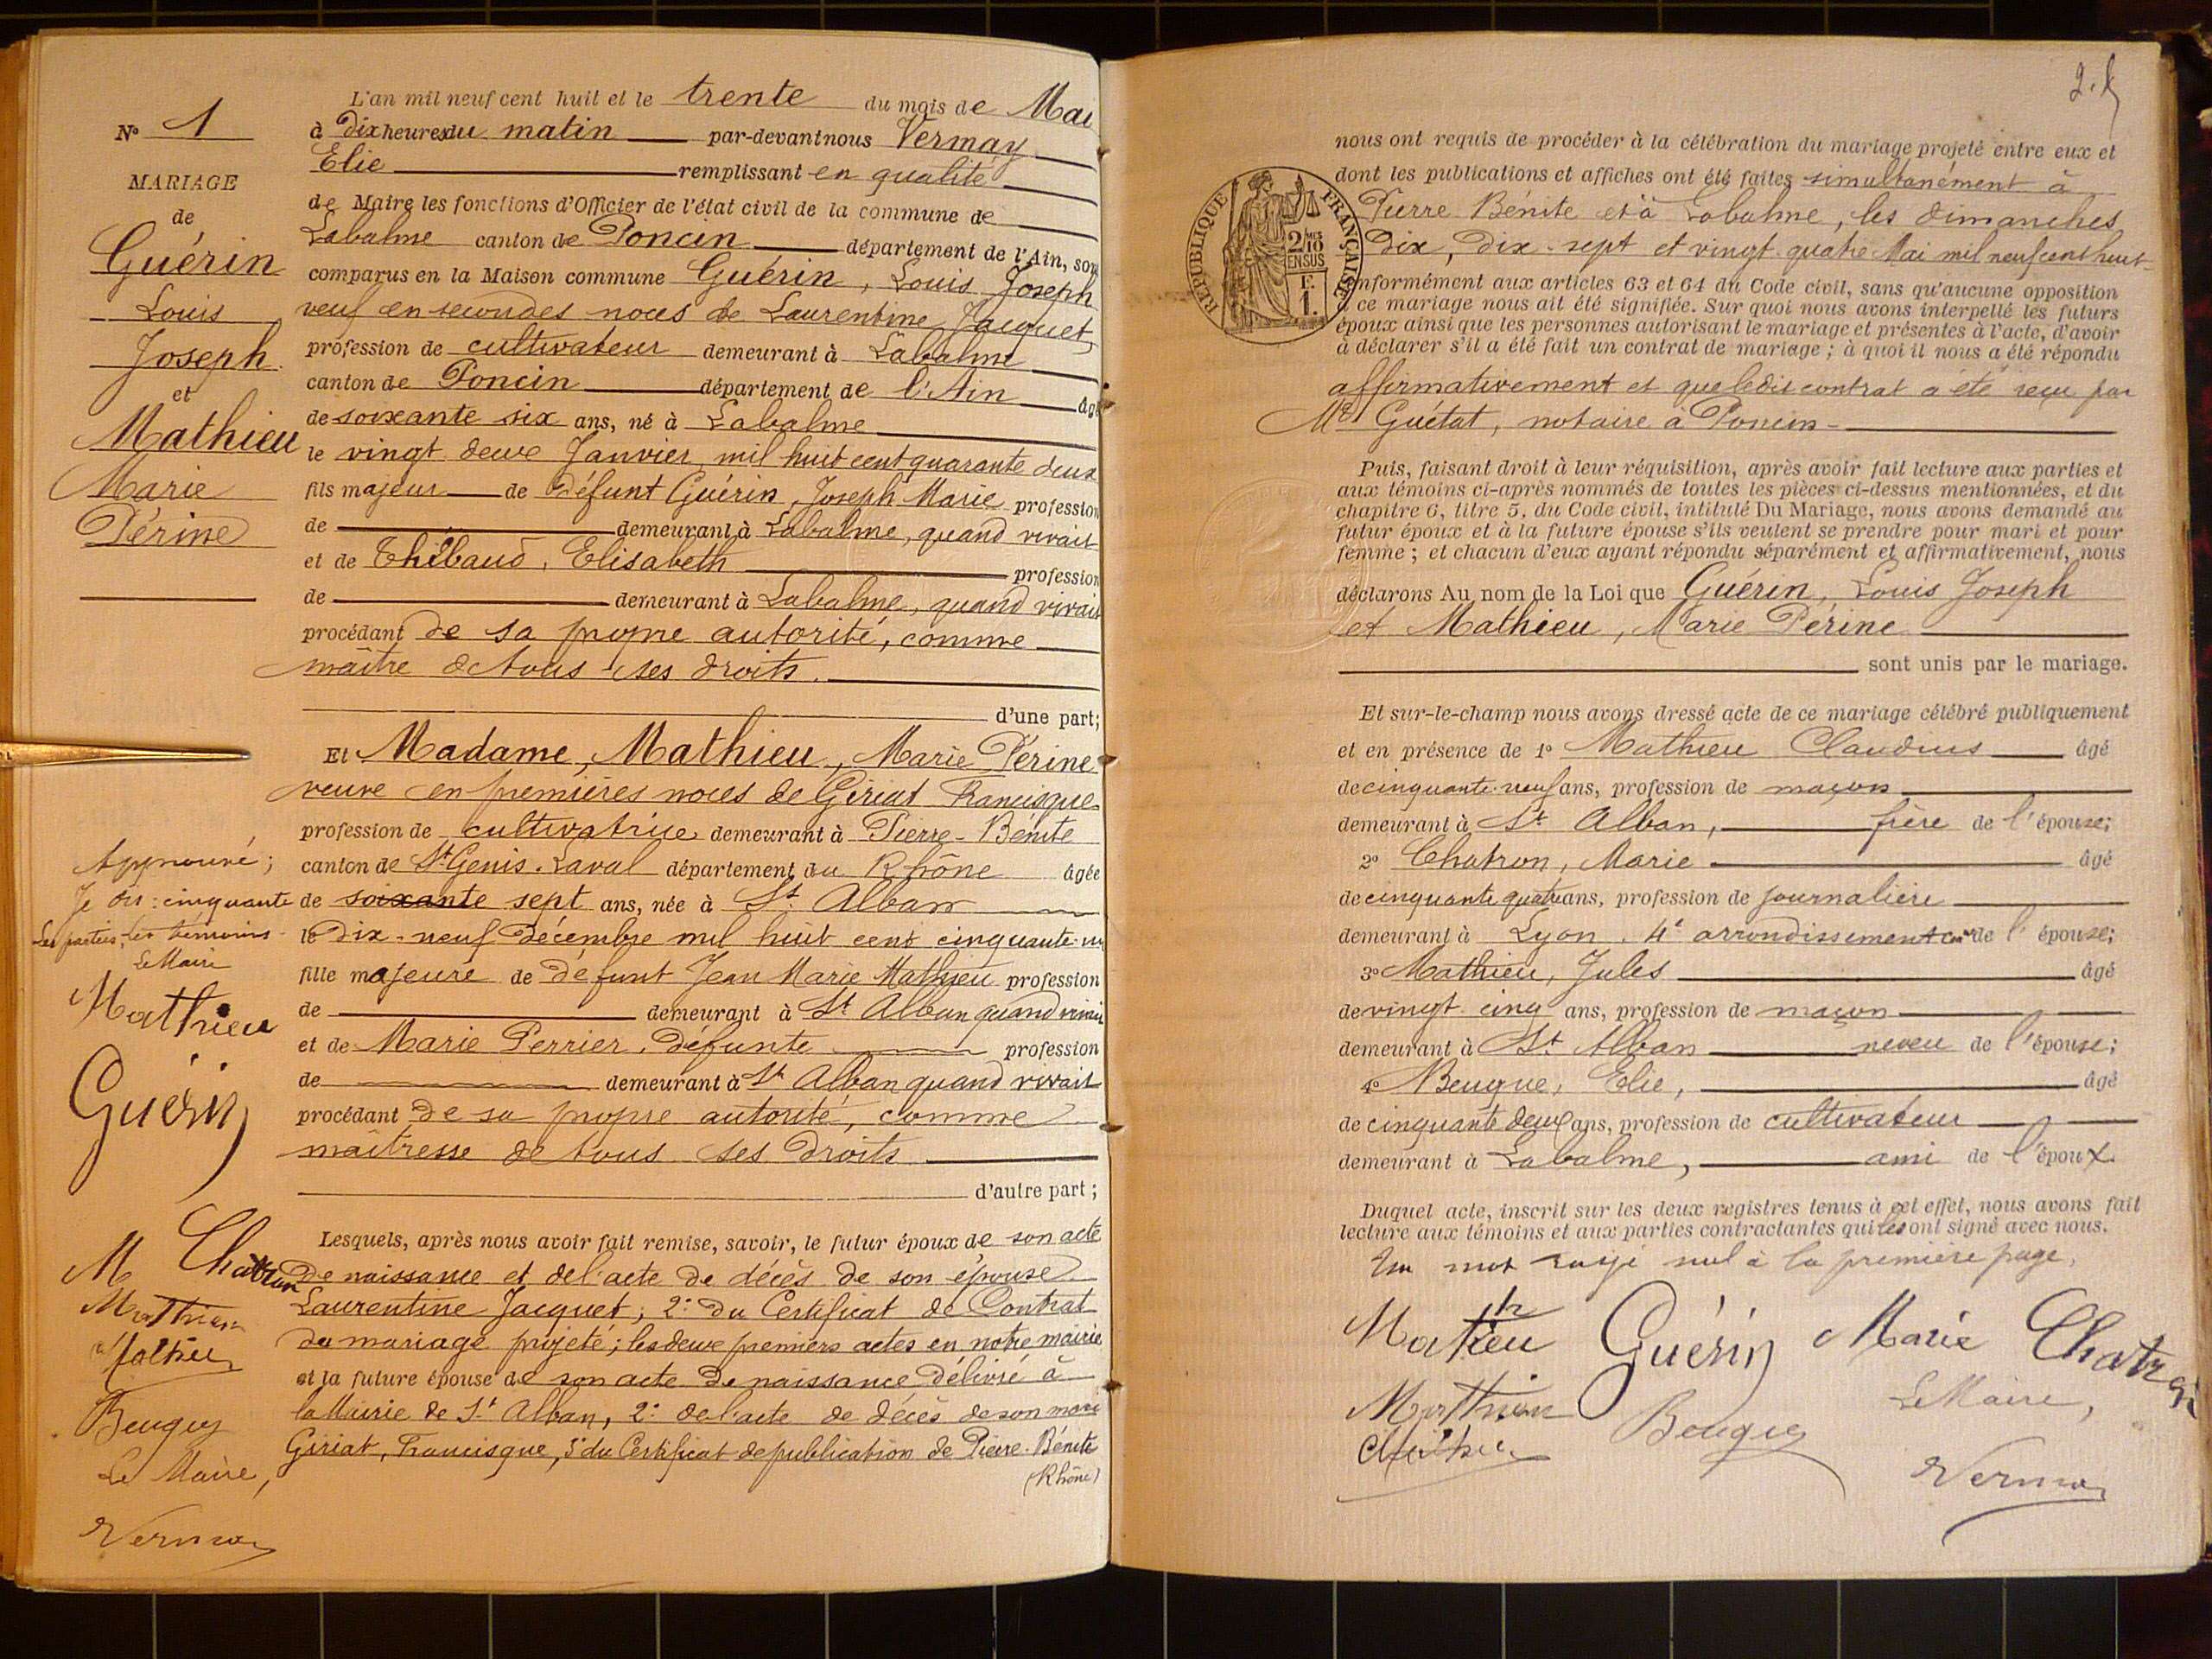 N° 1
MARIAGE
de
Guérin
Louis
Joseph
et
Mathieu
Marie
Périne
L'an mil neuf cent huit et le trente du mois de Mai
à dix heures du matin par-devant nous Vermay
Elie remplissant en qualité
de Maire les fonctions d'Officier de l'état civil de la commune de
Labalme canton de Poncin département de l'Ain, sont
comparus en la Maison commune Guérin, Louis Joseph
veuf en secondes noces de Laurentine Jacquet,
profession de cultivateur demeurant à Labalme
canton de Poncin département de l'Ain âgé
de soixante six ans, né à Labalme
le vingt deux Janvier mil huit cent quarante deux
fils majeur de défunt Guérin, Joseph Marie profession
de demeurant à Labalme, quand vivait
et de Thébaud, Elisabeth profession
de demeurant à Labalme, quand vivait
procédant de sa propre autorité, comme
maître de tous ses droits.
d'une part;
Et Madame, Mathieu, Marie Périne
veuve en premières noces de Giriat Francisque
profession de cultivatrice demeurant à Pierre-Bénite
canton de St Genis-Laval département du Rhône âgée
de soixante sept ans, née à St. Alban
le dix-neuf Décembre mil huit cent cinquante-un
fille majeure de défunt Jean Marie Mathieu profession
de demeurant à St Alban quand vivait
et de Marie Perrier, défunte profession
de demeurant à St Alban quand vivait
procédant de sa propre autorité, comme
maîtresse de tous ses droits
d'autre part;
Lesquels, après nous avoir fait remise, savoir, le futur époux de son acte
de naissance et de l'acte de décès de son épouse
Laurentine Jacquet; 2° du Certificat de Contrat
du mariage projeté; les deux premiers actes en notre mairie
et la future épouse de son acte de naissance délivré à
la Mairie de St Alban, 2° de l'acte de décès de son mari
Giriat, Francisque, 3° du Certificat de publication de Pierre-Bénite
(Rhône)
Approuvé;
Je dis: cinquante
Les parties, les témoins
Le Maire
Mathieu
Guérin
M Chatron
Mathieu
Mathieu
Beugue
Le Maire,
Vermay
nous ont requis de procéder à la célébration du mariage projeté entre eux et
dont les publications et affiches ont été faites simultanément à
Pierre Bénite et à Labalme, les dimanches
dix, dix-sept et vingt-quatre Mai mil neuf cent huit
conformément aux articles 63 et 64 du Code civil, sans qu'aucune opposition
à ce mariage nous ait été signifiée. Sur quoi nous avons interpellé les futurs
époux ainsi que les personnes autorisant le mariage et présentes à l'acte, d'avoir
à déclarer s'il a été fait un contrat de mariage; à quoi il nous a été répondu
affirmativement et que ledit contrat a été reçu par
Me Guétat, notaire à Poncin
RÉPUBLIQUE FRANÇAISE
2/10 MES
EN SUS
F.
1.
Puis, faisant droit à leur réquisition, après avoir fait lecture aux parties et
aux témoins ci-après nommés de toutes les pièces ci-dessus mentionnées, et du
chapitre 6, titre 5, du Code civil, intitulé Du Mariage, nous avons demandé au
futur époux et à la future épouse s'ils veulent se prendre pour mari et pour
femme; et chacun d'eux ayant répondu séparément et affirmativement, nous
déclarons Au nom de la Loi que Guérin, Louis Joseph
et Mathieu, Marie Périne
sont unis par le mariage.
Et sur-le-champ nous avons dressé acte de ce mariage célébré publiquement
et en présence de 1° Mathieu Claudius âgé
de cinquante-neuf ans, profession de maçon
demeurant à St Alban, frère de l'épouse;
2° Chatron, Marie âgé
de cinquante quatre ans, profession de journalière
demeurant à Lyon, 4e arrondissement de l'épouse;
3° Mathieu, Jules âgé
de vingt cinq ans, profession de maçon
demeurant à St Alban neveu de l'épouse;
4° Beugue, Elie, âgé
de cinquante deux ans, profession de cultivateur
demeurant à Labalme, ami de l'époux
Duquel acte, inscrit sur les deux registres tenus à cet effet, nous avons fait
lecture aux témoins et aux parties contractantes qui les ont signé avec nous.
Un mot rayé nul à la première page.
Mathieu Guérin Marie Chatron
Mathieu Beugue Le Maire,
Mathieu Vermay